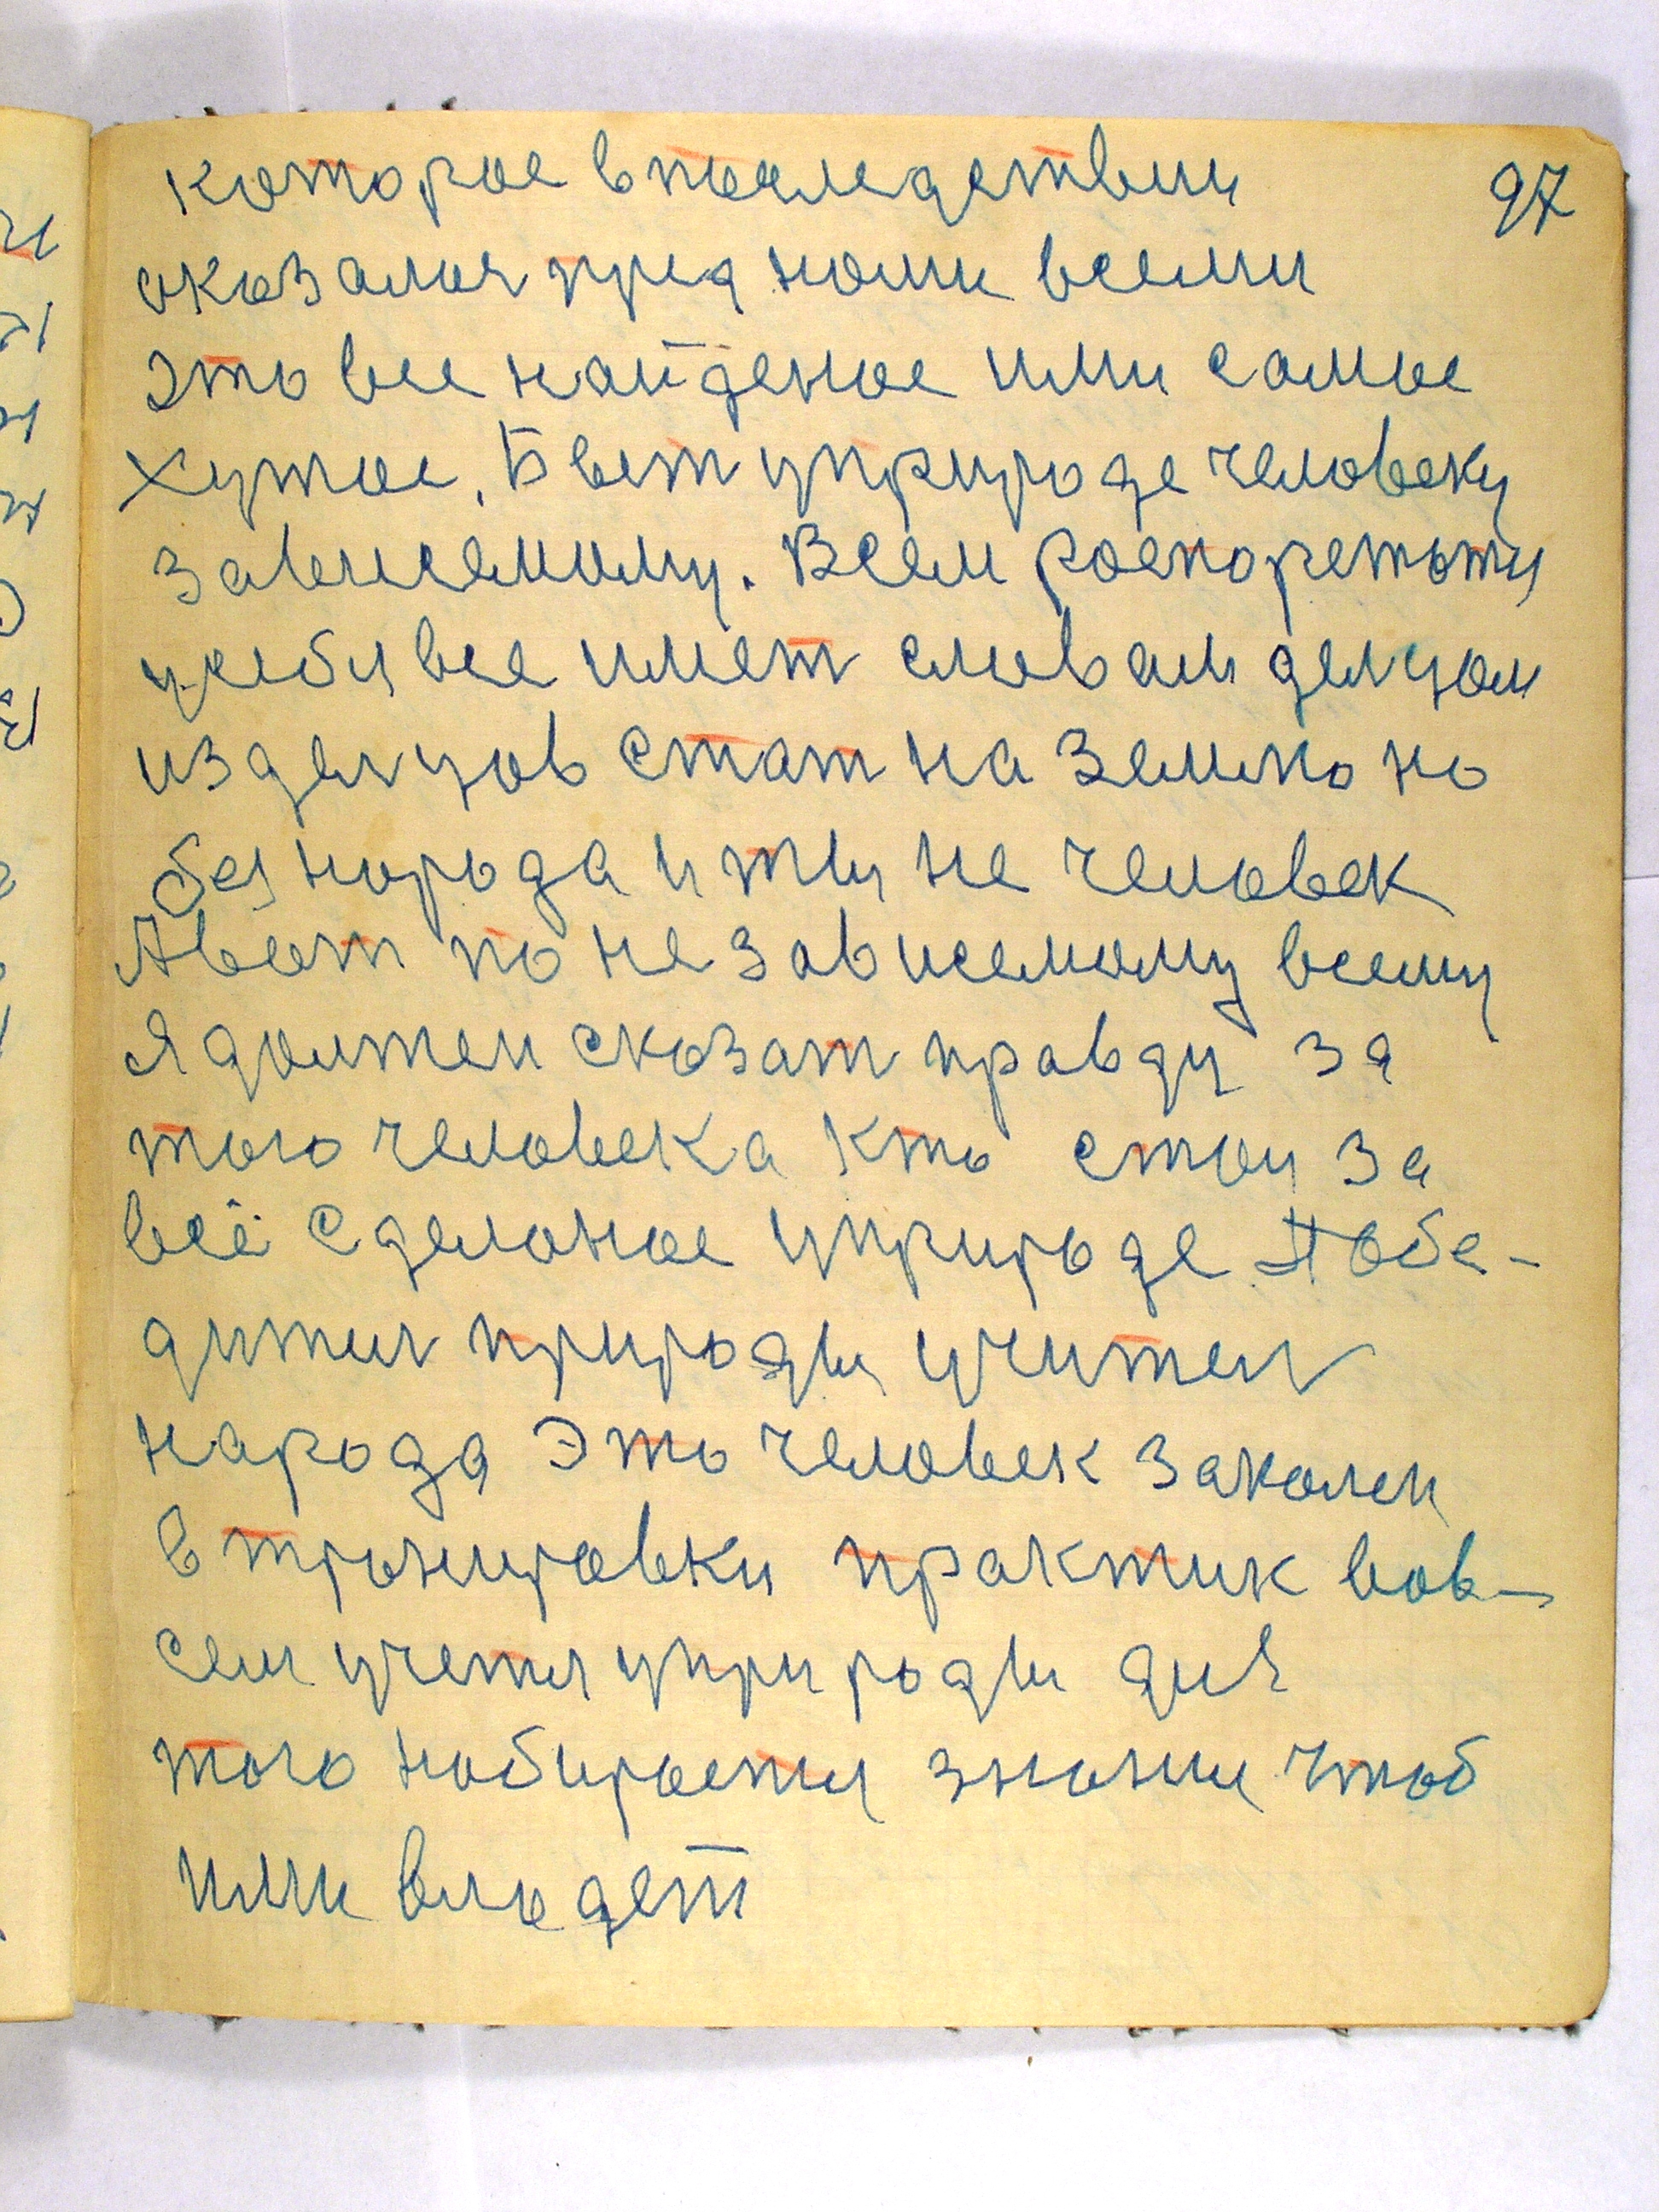 которое впоследствии 97
оказалося пред нами всеми
это все найденое ими самое
хутшое. Бвет уприроде человеку
зависемому. Всем роспорєтся
усебя все имет словам делцом
из делцов стат на Землю но
без народа и ты не человек
Авот по не зависемому всему
я должен сказат правду за
того человека кто стои за
всё сделоное уприроде Побе-
дител природы учител
народа Это человек закален
в тренировки практик вов-
сем учется уприроды для
того набирается знании чтоб
ими владет